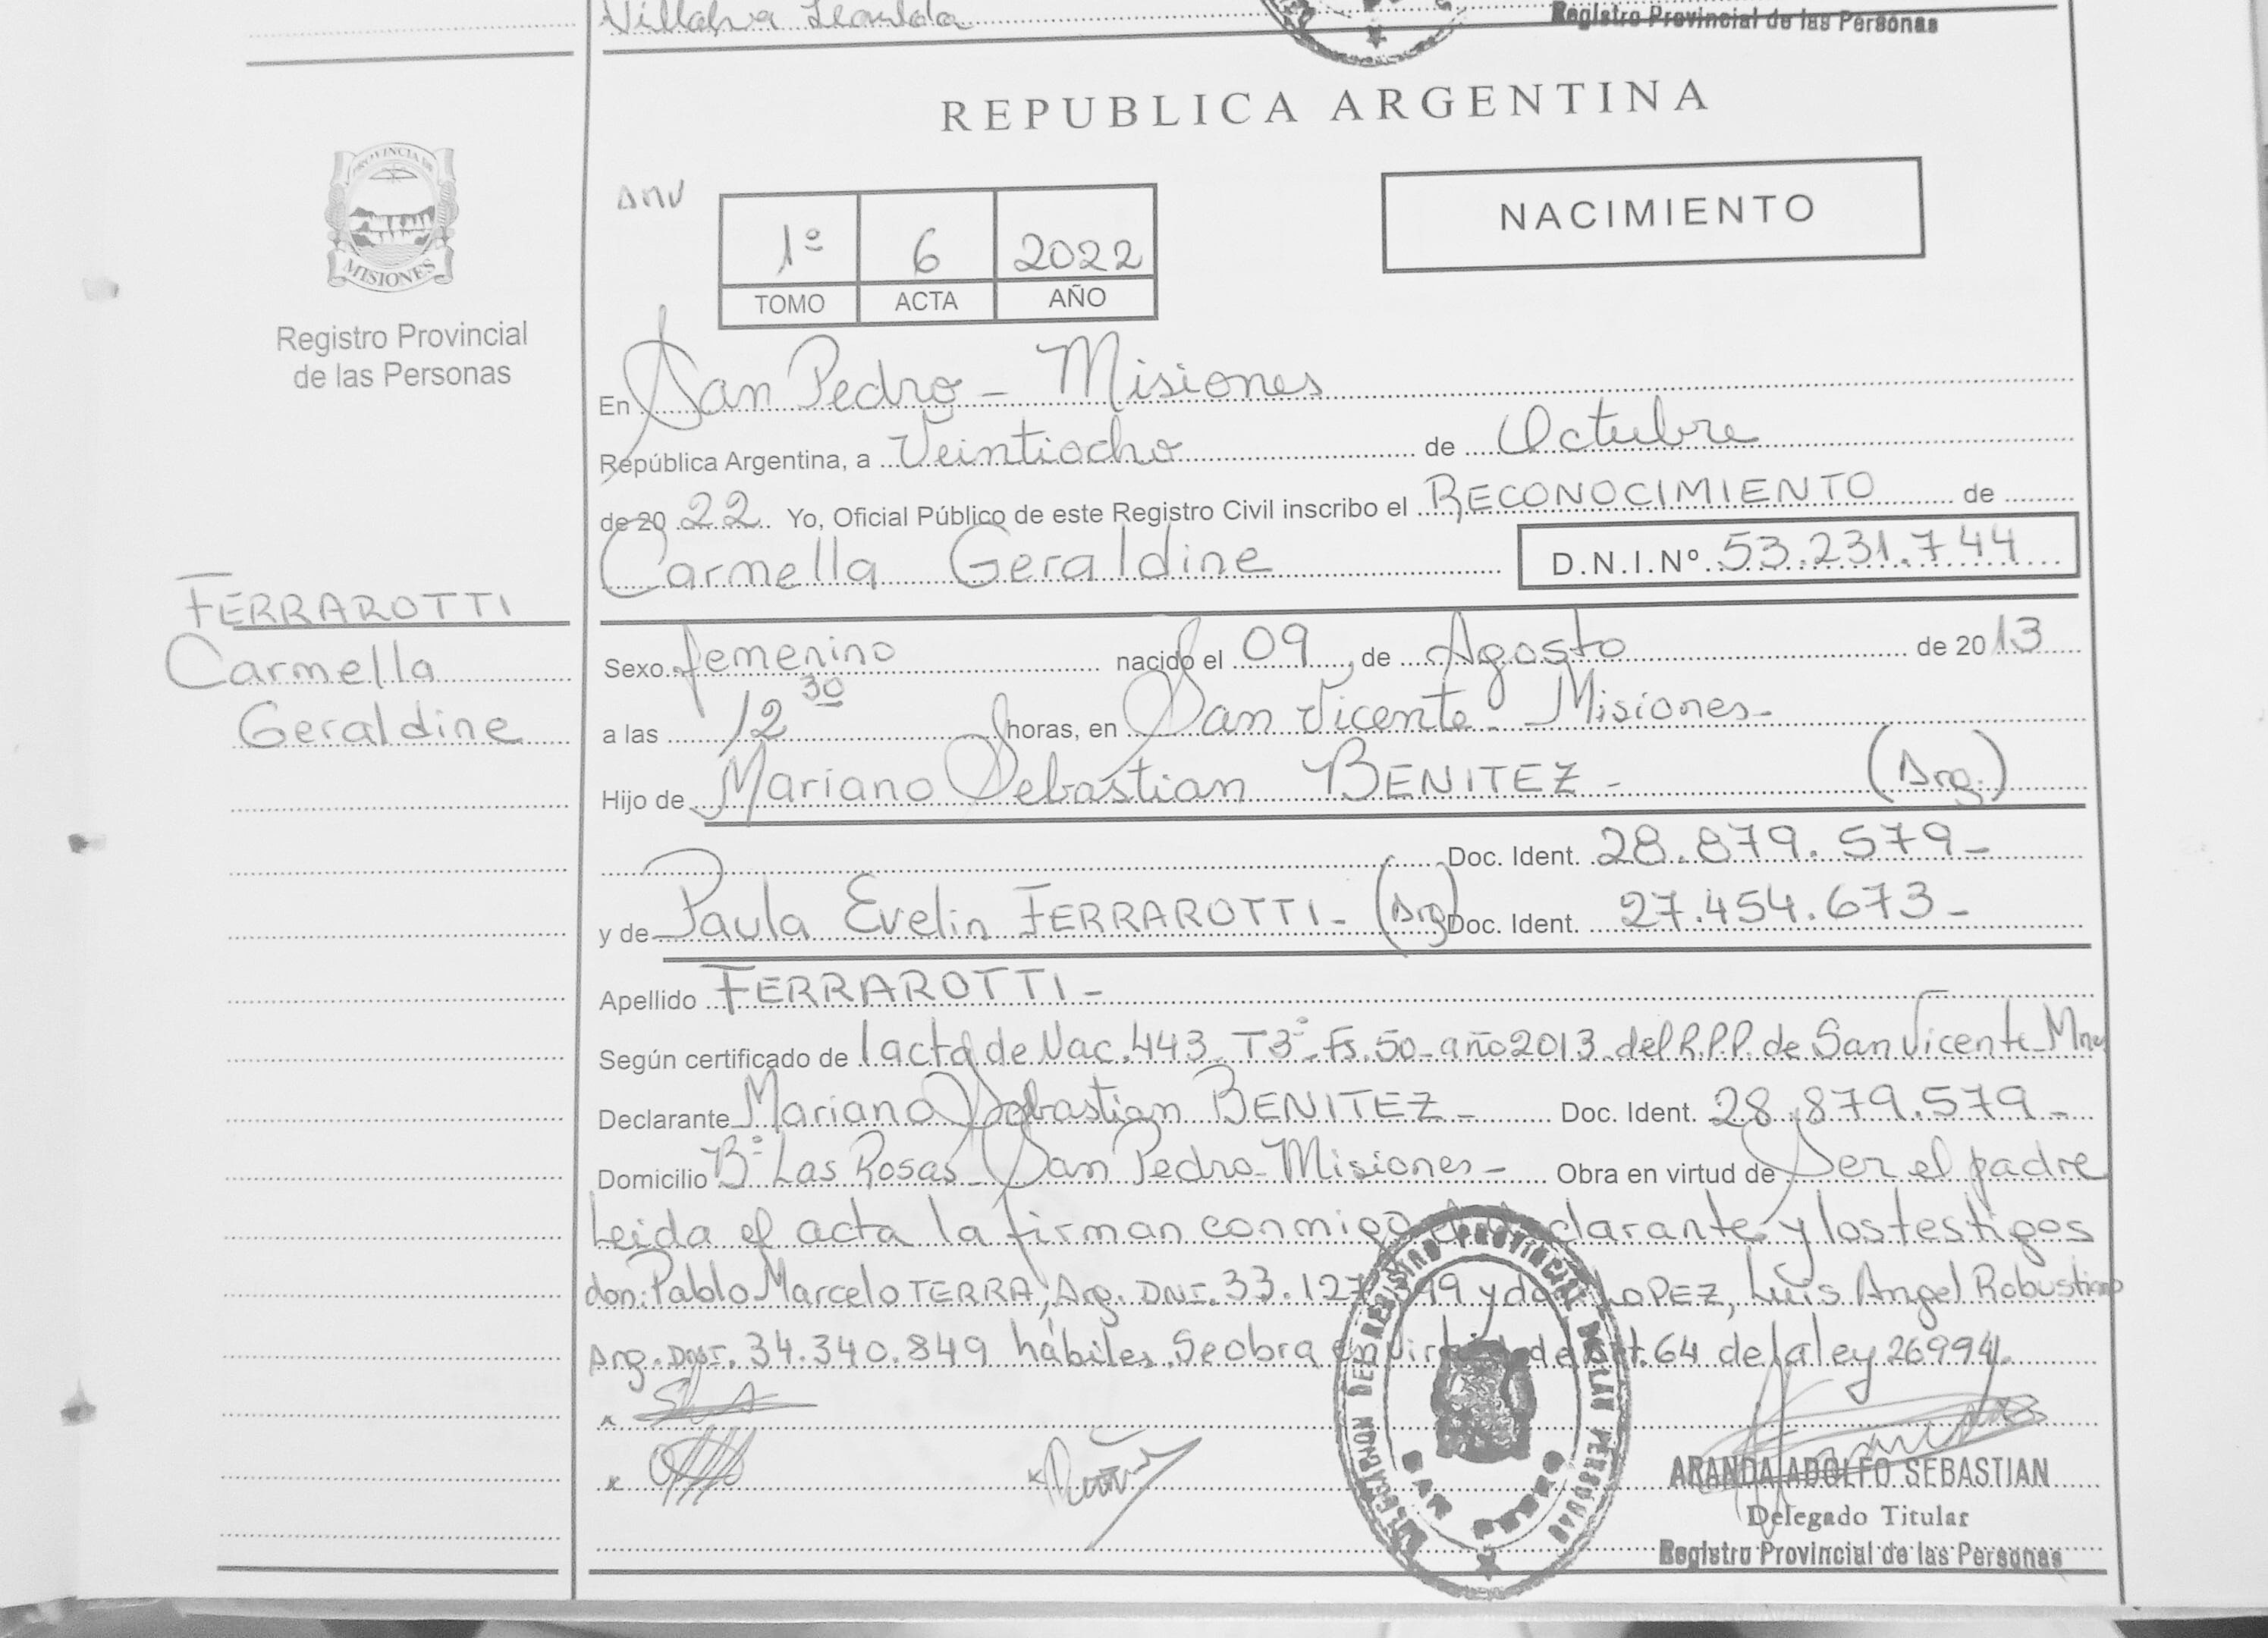 Villalva
Registro Provincial de las Personas
REPUBLICA ARGENTINA
PROVINCIA DE
MISIONES
Registro Provincial
de las Personas
1º 6 2022
TOMO ACTA AÑO
NACIMIENTO
En San Pedro - Misiones
República Argentina, a Veintiocho de Octubre
de 20 22 Yo, Oficial Público de este Registro Civil inscribo el RECONOCIMIENTO de
Carmella Geraldine D.N.I.Nº 53.231.744
FERRAROTTI
Carmella
Geraldine
Sexo femenino nacido el 09, de Agosto de 2013
a las 12 30 horas, en San Vicente - Misiones -
Hijo de Mariano Sebastian BENITEZ - (Arg.)
Doc. Ident. 28.879.579 -
y de Paula Evelin FERRAROTTI - (Arg) Doc. Ident. 27.454.673 -
Apellido FERRAROTTI -
Según certificado de acta de Nac. 443 - T3º - Fs. 50 - año 2013 - del R.P.P. de San Vicente - Mnes
Declarante Mariano Sebastian BENITEZ - Doc. Ident. 28.879.579 -
Domicilio Bº Las Rosas - San Pedro - Misiones - Obra en virtud de Ser el padre
Leida el acta la firman conmigo el declarante y los testigos
don: Pablo Marcelo TERRA, Arg. DNI. 33.127.399 y don LOPEZ, Luis Angel Robustiano
Arg. DNI. 34.340.849 hábiles. Se obra en virtud de Art. 64 de la ley 26994.
DELEGACION DEL REGISTRO PROVINCIAL DE LAS PERSONAS
SAN PEDRO
ARANDA ADOLFO SEBASTIAN
Delegado Titular
Registro Provincial de las Personas